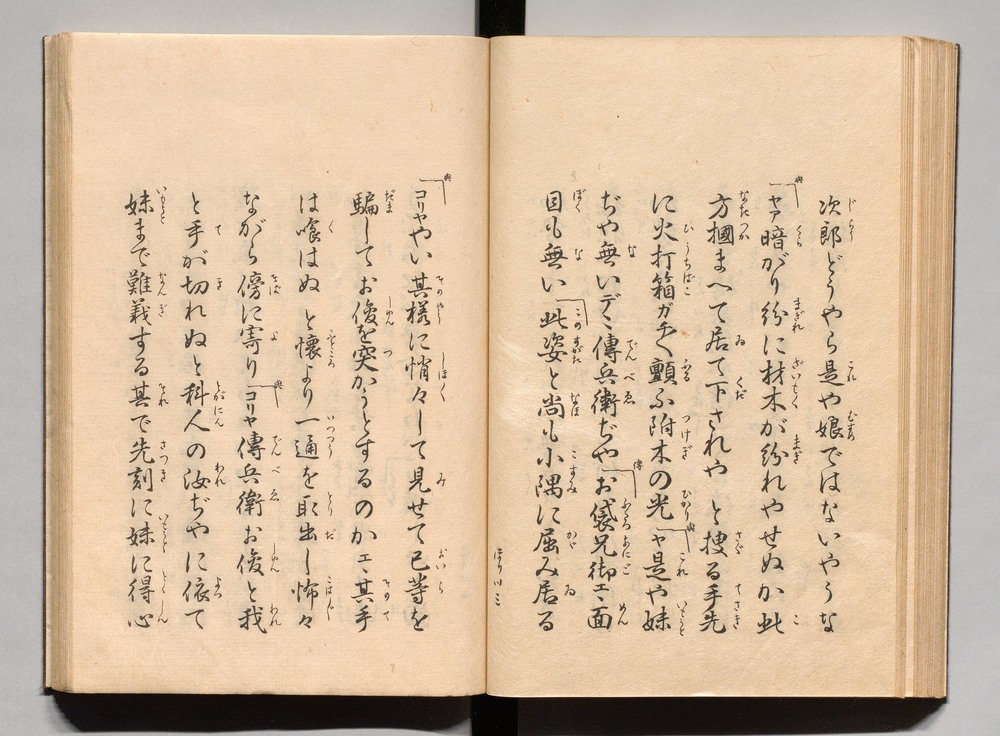 次郎どうやら是や娘ではないやうな
ヤア暗がり紛に材木が紛れやせぬか此
方摑まへて居て下されや と捜る手先
に火打箱ガチ〱顫ふ附木の光 ヤ是や妹
ぢや無いデヽ傳兵衛ぢや お袋兄御エ面
目も無い 此姿と尚も小隅に屈み居る
コリヤやい其様に悄々して見せて己等を
騙してお俊を突かうとするのかエヽ其手
は喰はぬ と懐より一通を取出し怖々
ながら傍に寄り コリヤ傳兵衛お俊と我
と手が切れぬと科人の汝ぢやに依て
妹まで難義する其で先刻に妹に得心